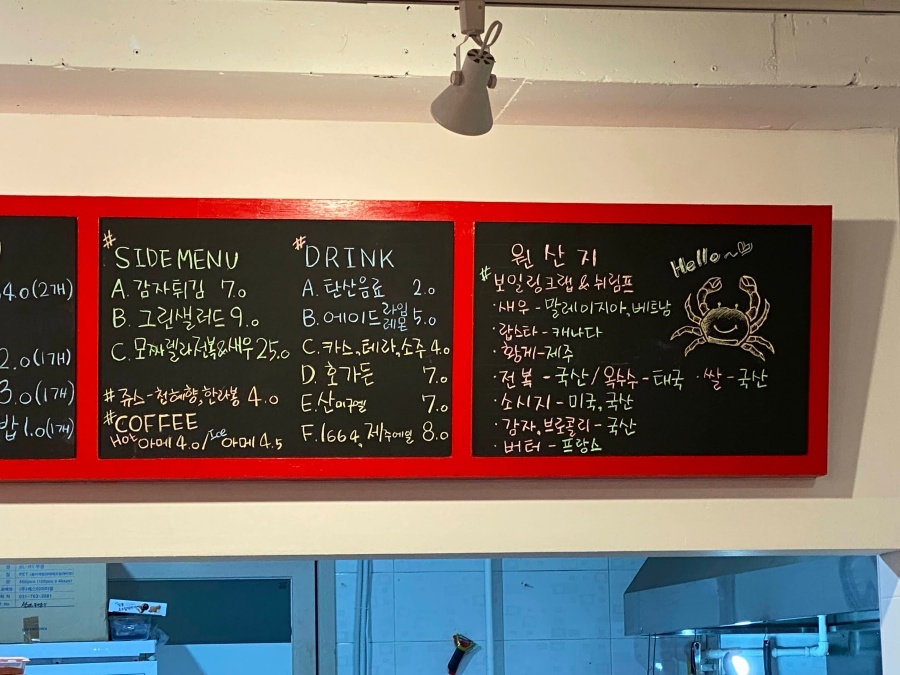 4.0(2개)
2.0(1개)
3.0(1개)
밥 1.0(1개)
#SIDE MENU
A. 감자튀김 7.0
B. 그린샐러드 9.0
C. 모짜렐라전복&새우 25.0
#쥬스-천혜향,한라봉 4.0
#COFFEE
Hot 아메 4.0/Ice 아메 4.5
#DRINK
A. 탄산음료 2.0
B. 에이드 라임 레몬 5.0
C. 카스,테라,소주 4.0
D. 호가든 7.0
E. 산미구엘 7.0
F. 1664, 제주에일 8.0
원산지
#보일링크랩&쉬림프
·새우-말레이지아,베트남
·랍스타-캐나다
·황게-제주
·전복-국산/옥수수-태국 ·쌀-국산
·소시지-미국,국산
·감자,브로콜리-국산
·버터-프랑스
Hello~